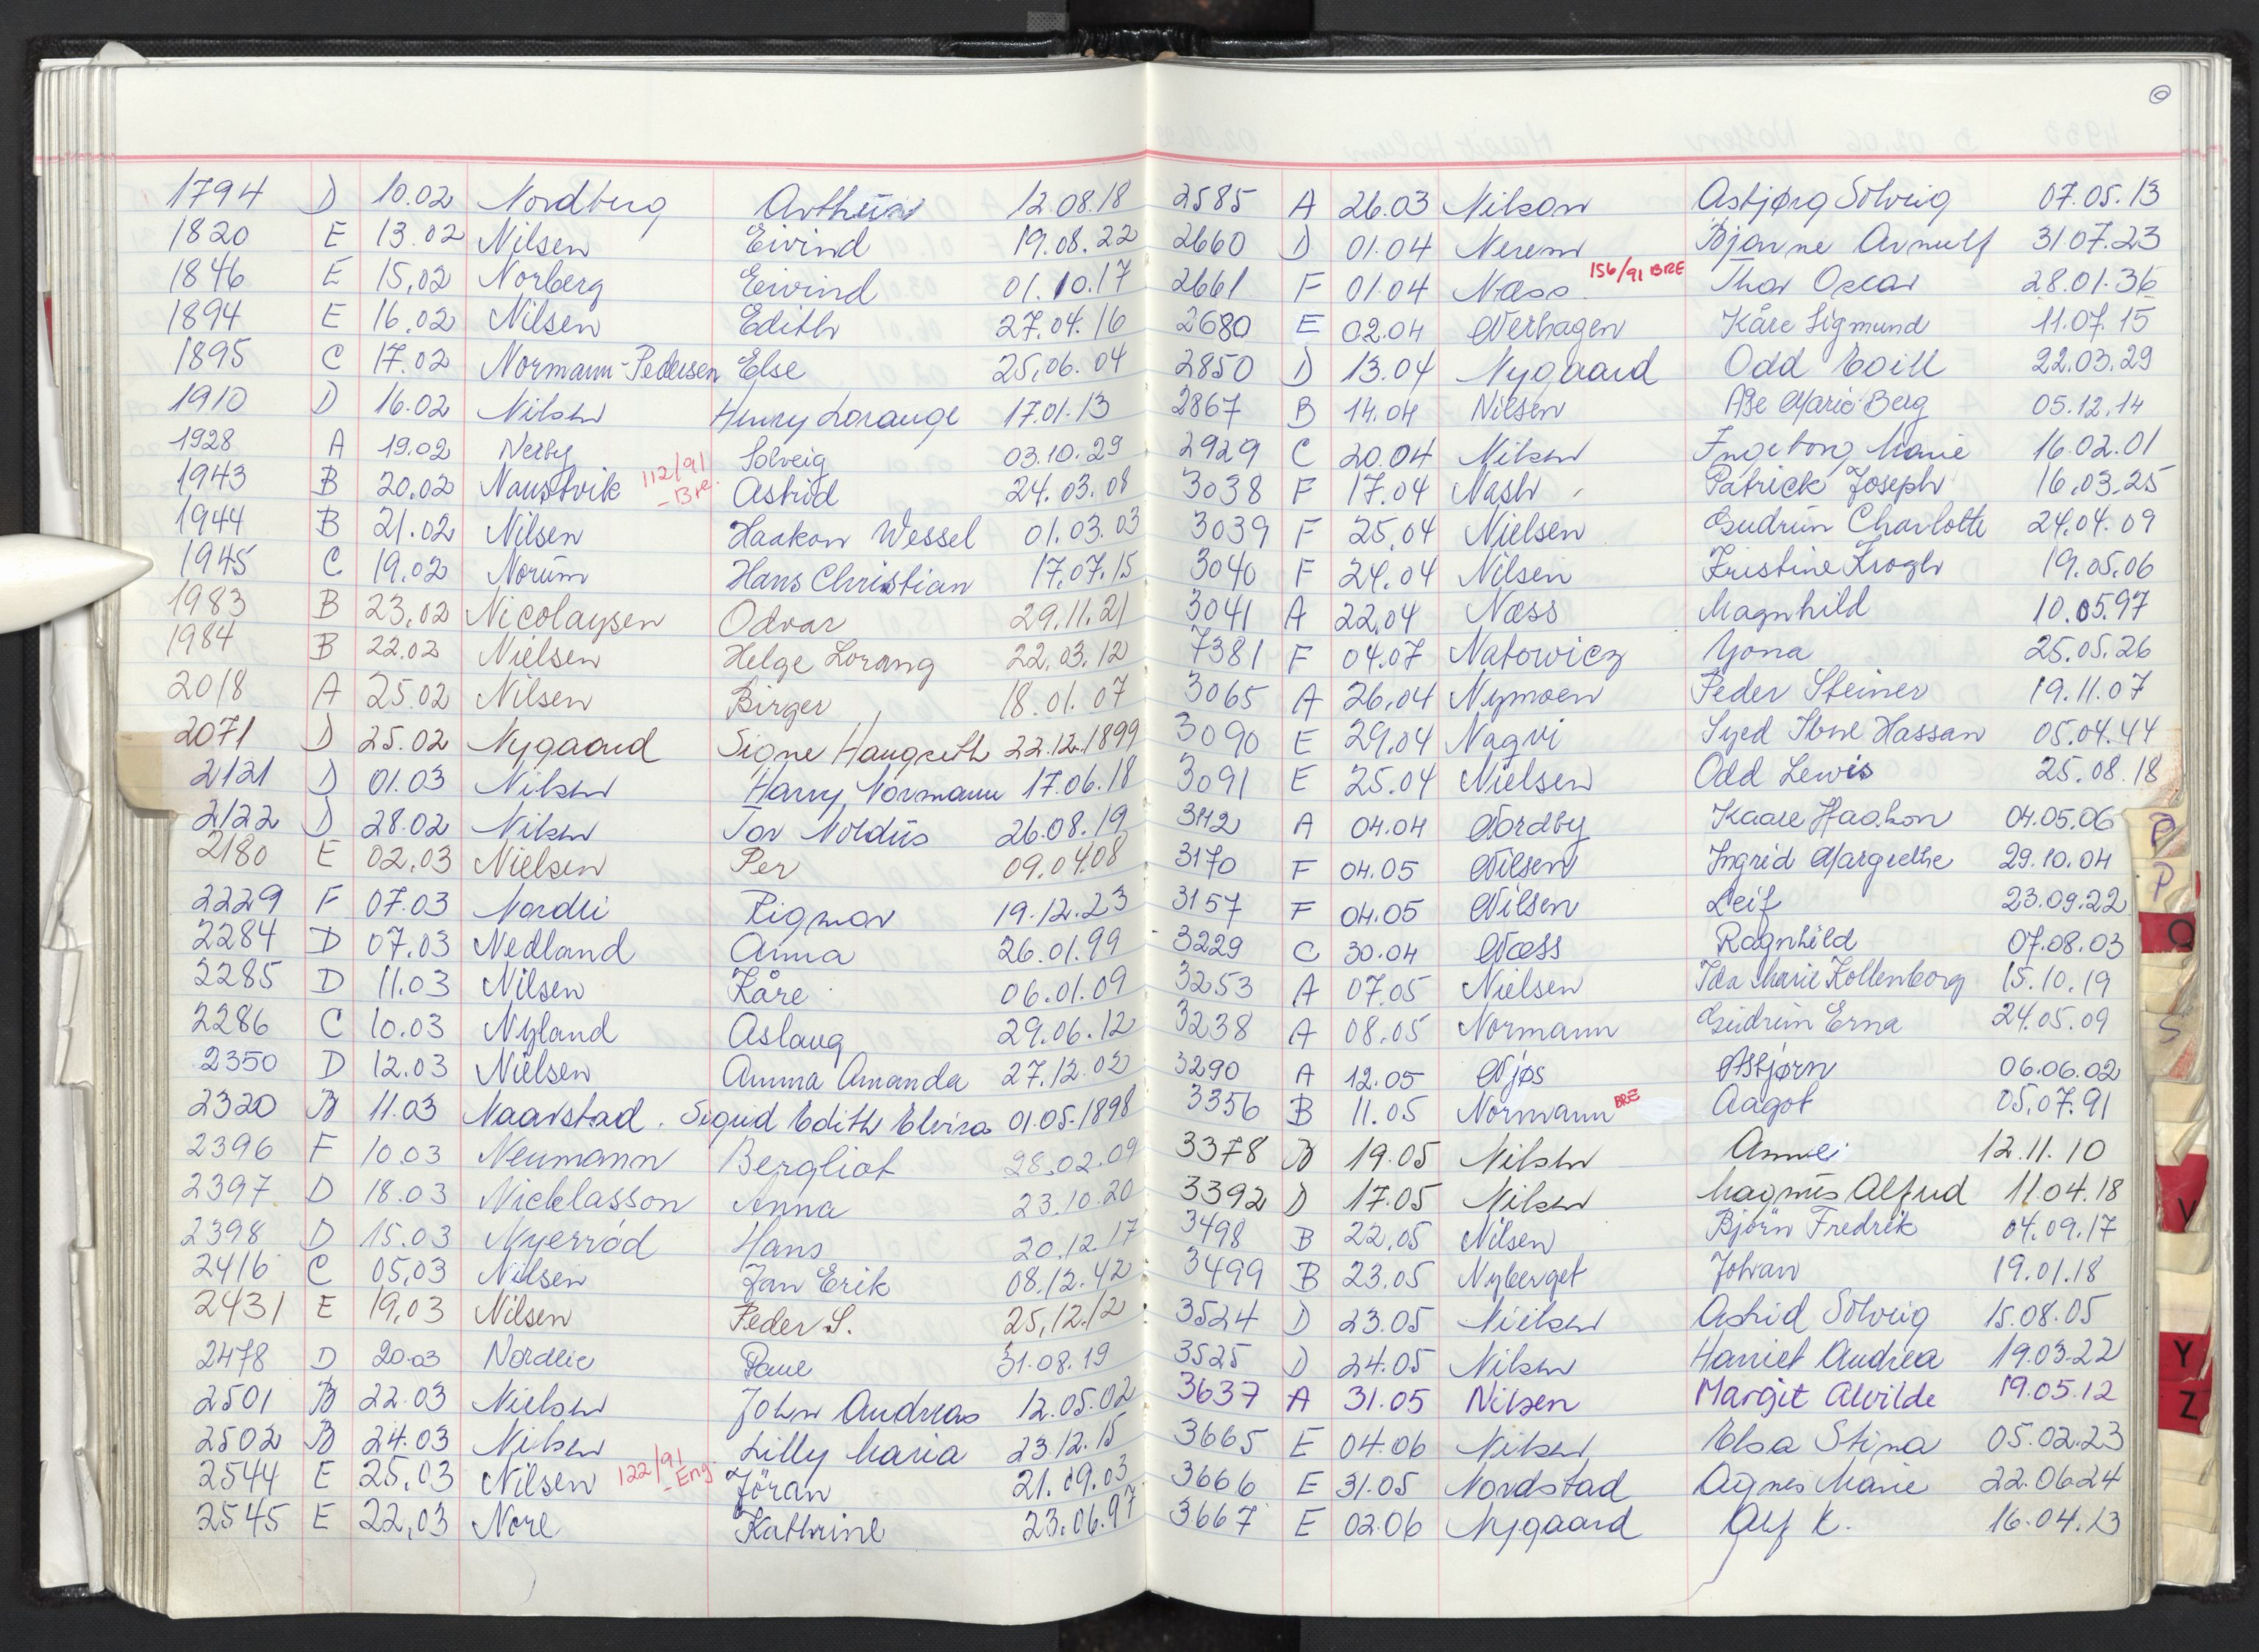 1794 D 10.02 Nordberg Arthur 12.08.18
1820 E 13.02 Nilsen Eivind 19.08.22
1846 E 15.02 Norberg Eivind 01.10.17
1894 E 16.02 Nilsen Edith 27.04.16
1895 C 17.02 Normann-Pedersen Else 25.06.04
1910 D 16.02 Nilsen Henry Lorange 17.01.13
1928 A 19.02 Nerby Solveig 03.10.29
1943 B 20.02 Naustvik 112/91 - Bre. Astrid 24.03.08
1944 B 21.02 Nilsen Haakon Wessel 01.03.03
1945 C 19.02 Norum Hans Christian 17.07.15
1983 B 23.02 Nicolaysen Odvar 29.11.21
1984 B 22.02 Nielsen Helge Lorang 22.03.12
2018 A 25.02 Nilsen Birger 18.01.07
2071 D 25.02 Nygaard Signe Haugseth 22.12.1899
2121 D 01.03 Nilsen Harry Normann 17.06.18
2122 D 28.02 Nilsen Tor Noldus 26.08.19
2180 E 02.03 Nielsen Per 09.04.08
2229 F 07.03 Nordli Rigmor 19.12.23
2284 D 07.03 Nedland Anna 26.01.99
2285 D 11.03 Nilsen Kåre 06.01.09
2286 C 10.03 Nyland Aslaug 29.06.12
2350 D 12.03 Nielsen Anna Amanda 27.12.02
2320 B 11.03 Naarstad. Sigrid Edith Elvira 01.05.1898
2396 F 10.03 Neumann Bergliot 28.02.09
2397 D 18.03 Nicklasson Anna 23.10.20
2398 D 15.03 Nyerrød Hans 20.12.17
2416 C 05.03 Nilsen Jan Erik 08.12.42
2431 E 19.03 Nilsen Peder S. 25.12.12
2478 D 20.03 Nordlie Paul 31.08.19
2501 B 22.03 Nielsen John Andreas 12.05.02
2502 B 24.03 Nilsen Lilly Maria 23.12.15
2544 E 25.03 Nilsen 122/91 - Eng. Jöran 21.09.03
2545 E 22.03 Nore Kathrine 23.06.97
2585 A 26.03 Nilson Asbjørg Solveig 07.05.13
2660 D 01.04 Nerem Bjarne Arnulf 31.07.23
2661 F 01.04 Næss 156/91 BRE Thor Oscar 28.01.36
2680 E 02.04 Nerhagen Kåre Sigmund 11.07.15
2850 D 13.04 Nygaard Odd Egill 22.03.29
2867 B 14.04 Nilsen Åse Marie Berg 05.12.14
2929 C 20.04 Nilsen Ingeborg Marie 16.02.01
3038 F 17.04 Nash Patrick Joseph 16.03.25
3039 F 25.04 Nielsen Gudrun Charlotte 24.04.09
3040 F 24.04 Nilsen Kristine Krogh 19.05.06
3041 A 22.04 Næss Magnhild 10.05.97
7381 F 04.07 Natowicz Yona 25.05.26
3065 A 26.04 Nymoen Peder Steiner 19.11.07
3090 E 29.04 Naqvi Syed Ibne Hassan 05.04.44
3091 E 25.04 Nielsen Odd Lewis 25.08.18
3112 A 04.04 Nordby Kaare Haakon 04.05.06
3170 F 04.05 Nilsen Ingrid Margrethe 29.10.04
3157 F 04.05 Nilsen Leif 23.09.22
3229 C 30.04 Næss Ragnhild 07.08.03
3253 A 07.05 Nielsen Ida Marie Kollenborg 15.10.19
3238 A 08.05 Normann Gudrun Erna 24.05.09
3290 A 12.05 Njøs Asbjørn 06.06.02
3356 B 11.05 Normann BRE Aagot 05.07.91
3378 B 19.05 Nilsen Annei 12.11.10
3392 D 17.05 Nilsen Magnus Alfred 11.04.18
3498 B 22.05 Nilsen Björn Fredrik 04.09.17
3499 B 23.05 Nyberget Johan 19.01.18
3524 D 23.05 Nielsen Astrid Solveig 15.08.05
3525 D 24.05 Nilsen Harriet Andrea 19.03.22
3637 A 31.05 Nilsen Margit Alvilde 19.05.12
3665 E 04.06 Nilsen Elsa Stina 05.02.23
3666 E 31.05 Nordstad Agnes Marie 22.06.24
3667 E 02.06 Nygaard Alf K. 16.04.13
P
P
Q
S
V
Y
Z